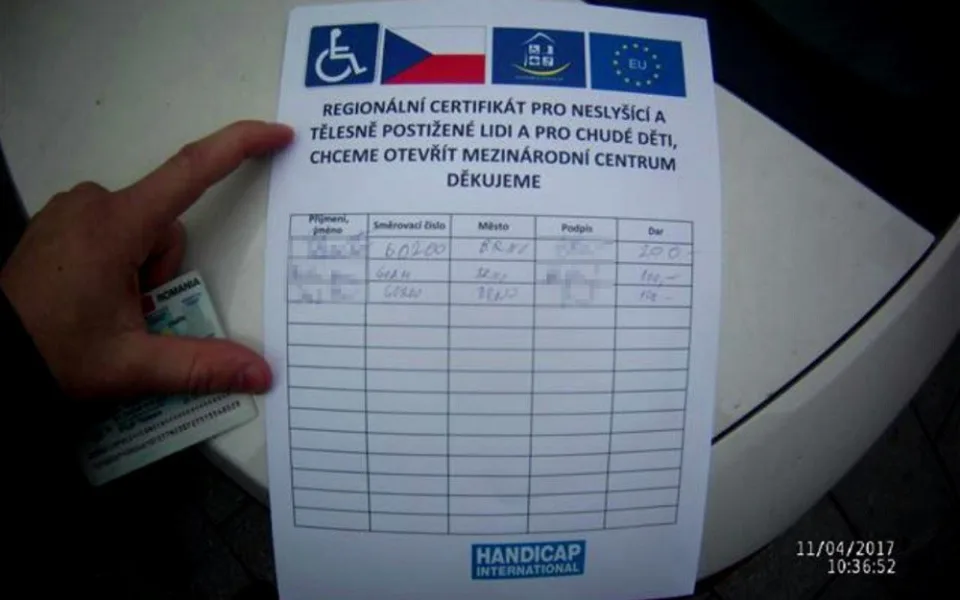 EU
REGIONÁLNÍ CERTIFIKÁT PRO NESLYŠÍCÍ A
TĚLESNĚ POSTIŽENÉ LIDI A PRO CHUDÉ DĚTI,
CHCEME OTEVŘÍT MEZINÁRODNÍ CENTRUM
DĚKUJEME
Příjmení, jméno Směrovací číslo Město Podpis Dar
60200 BRNO 200 -
BRNO 100,-
BRNO
ROMANIA
HANDICAP
INTERNATIONAL
11/04/2017
10:36:52